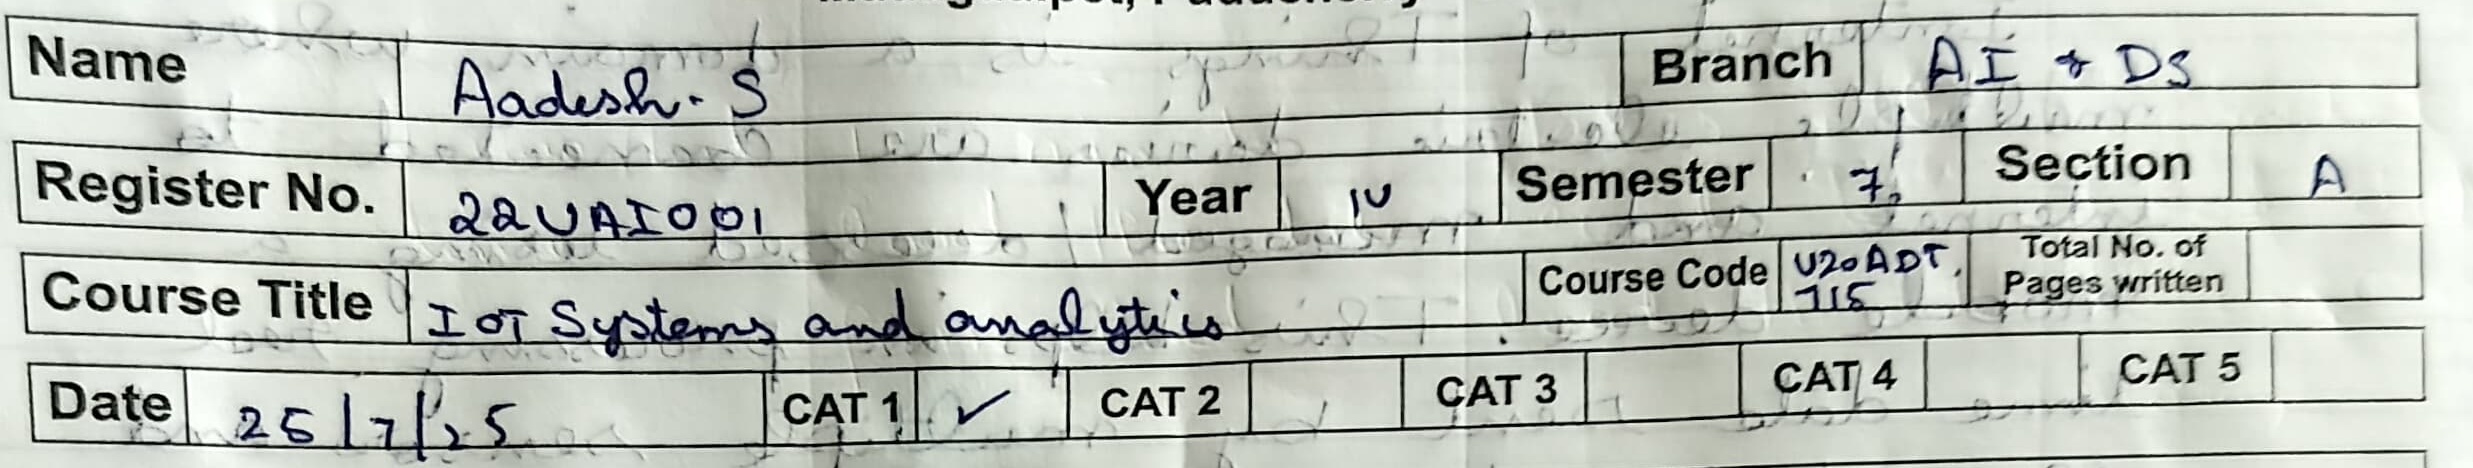 Name Aadesh. S Branch AI & DS
Register No. 22UAI001 Year IV Semester 7 Section A
Course Title IOT Systems and analytics Course Code U20ADT 715 Total No. of Pages written
Date 25/7/25 CAT 1 ✓ CAT 2 CAT 3 CAT 4 CAT 5